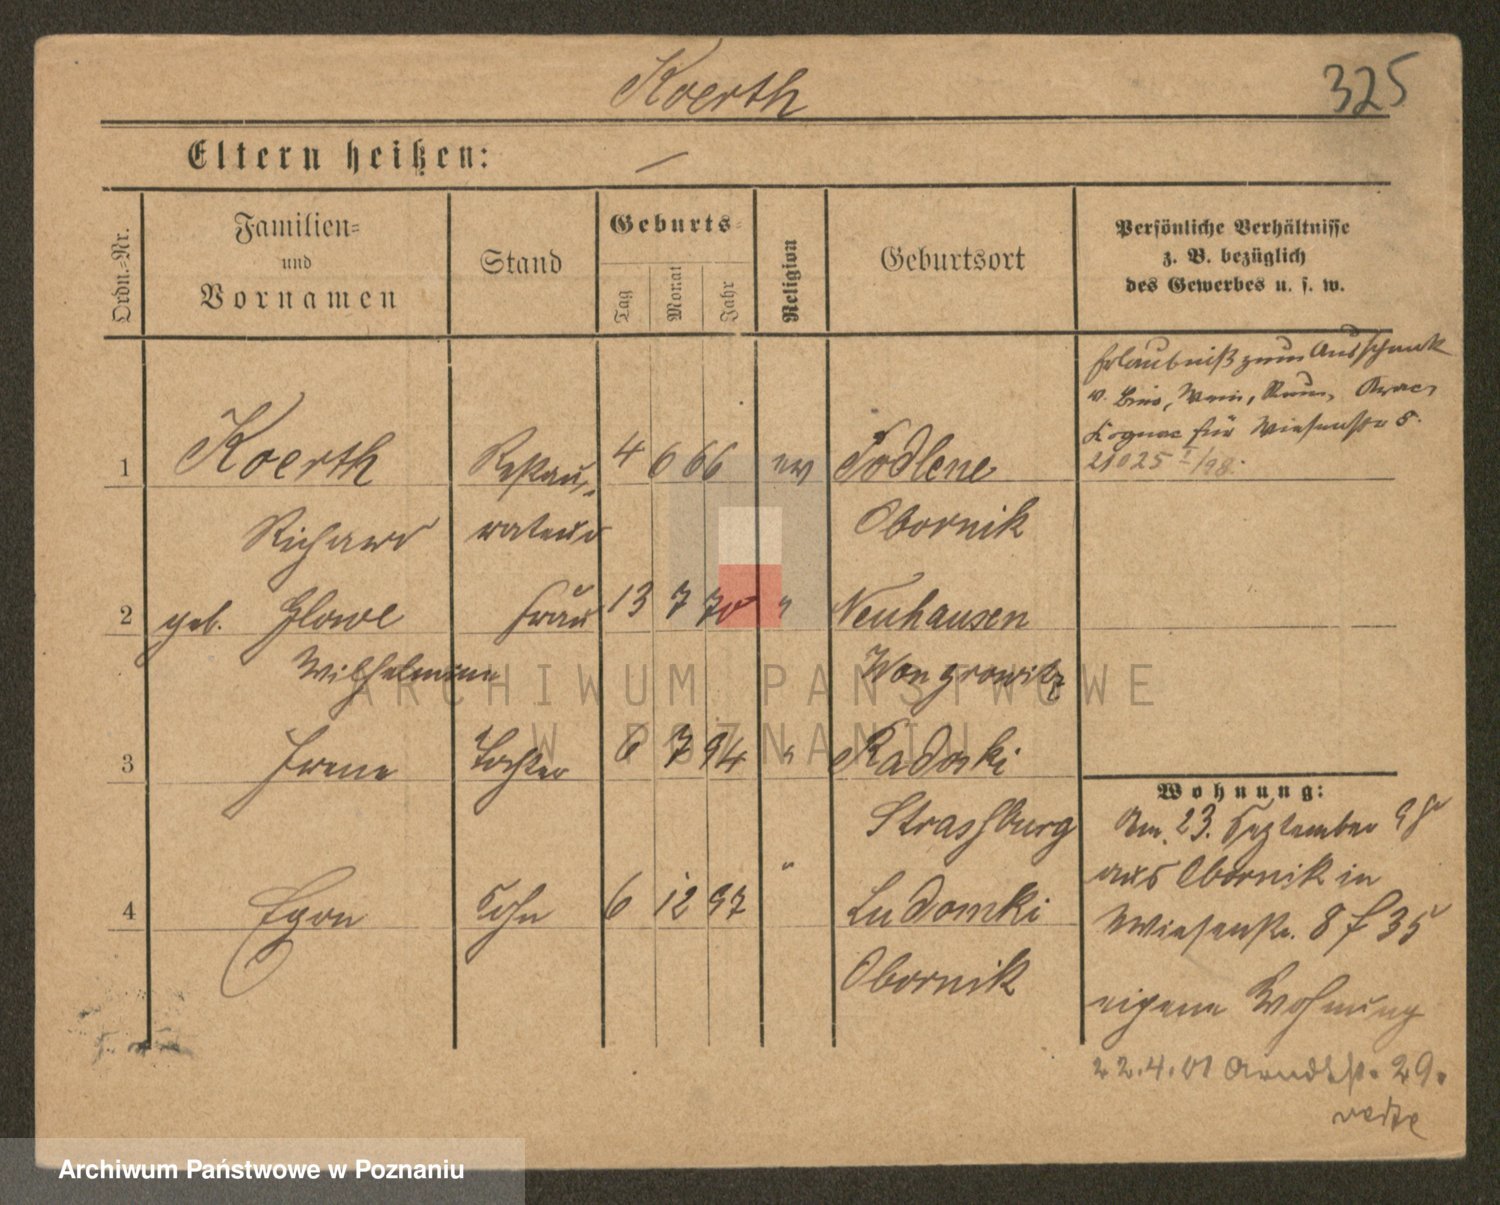 Koerth
325
Eltern heißen: —
Ordn.-Nr.
Familien-
und
Vornamen
Stand
Geburts-
Tag
Monat
Jahr
Religion
Geburtsort
Persönliche Verhältnisse
z. B. bezüglich
des Gewerbes u. s. w.
Erlaubniß zum Ausschank
v. Bier, Wein, Rum, Arac,
Kognac für Wiesenstr 5.
21025 I/98.
1 Koerth Restau- 4 6 66 ev Todlene
Richard rateur Obornik
2 geb. Glowe Frau 13 7 70 " Neuhausen
Wilhelmine Wongrowitz
3 Irene Tochter 6 7 94 " Radoski
Strasburg
4 Egon Sohn 6 12 97 " Ludomki
Obornik
Wohnung:
Am 23. September 98
aus Obornik in
Wiesenstr. 8 f 35
eigene Wohnung
22.4.01 Arndtstr. 29.
ARCHIWUM PAŃSTWOWE
W POZNANIU
Archiwum Państwowe w Poznaniu